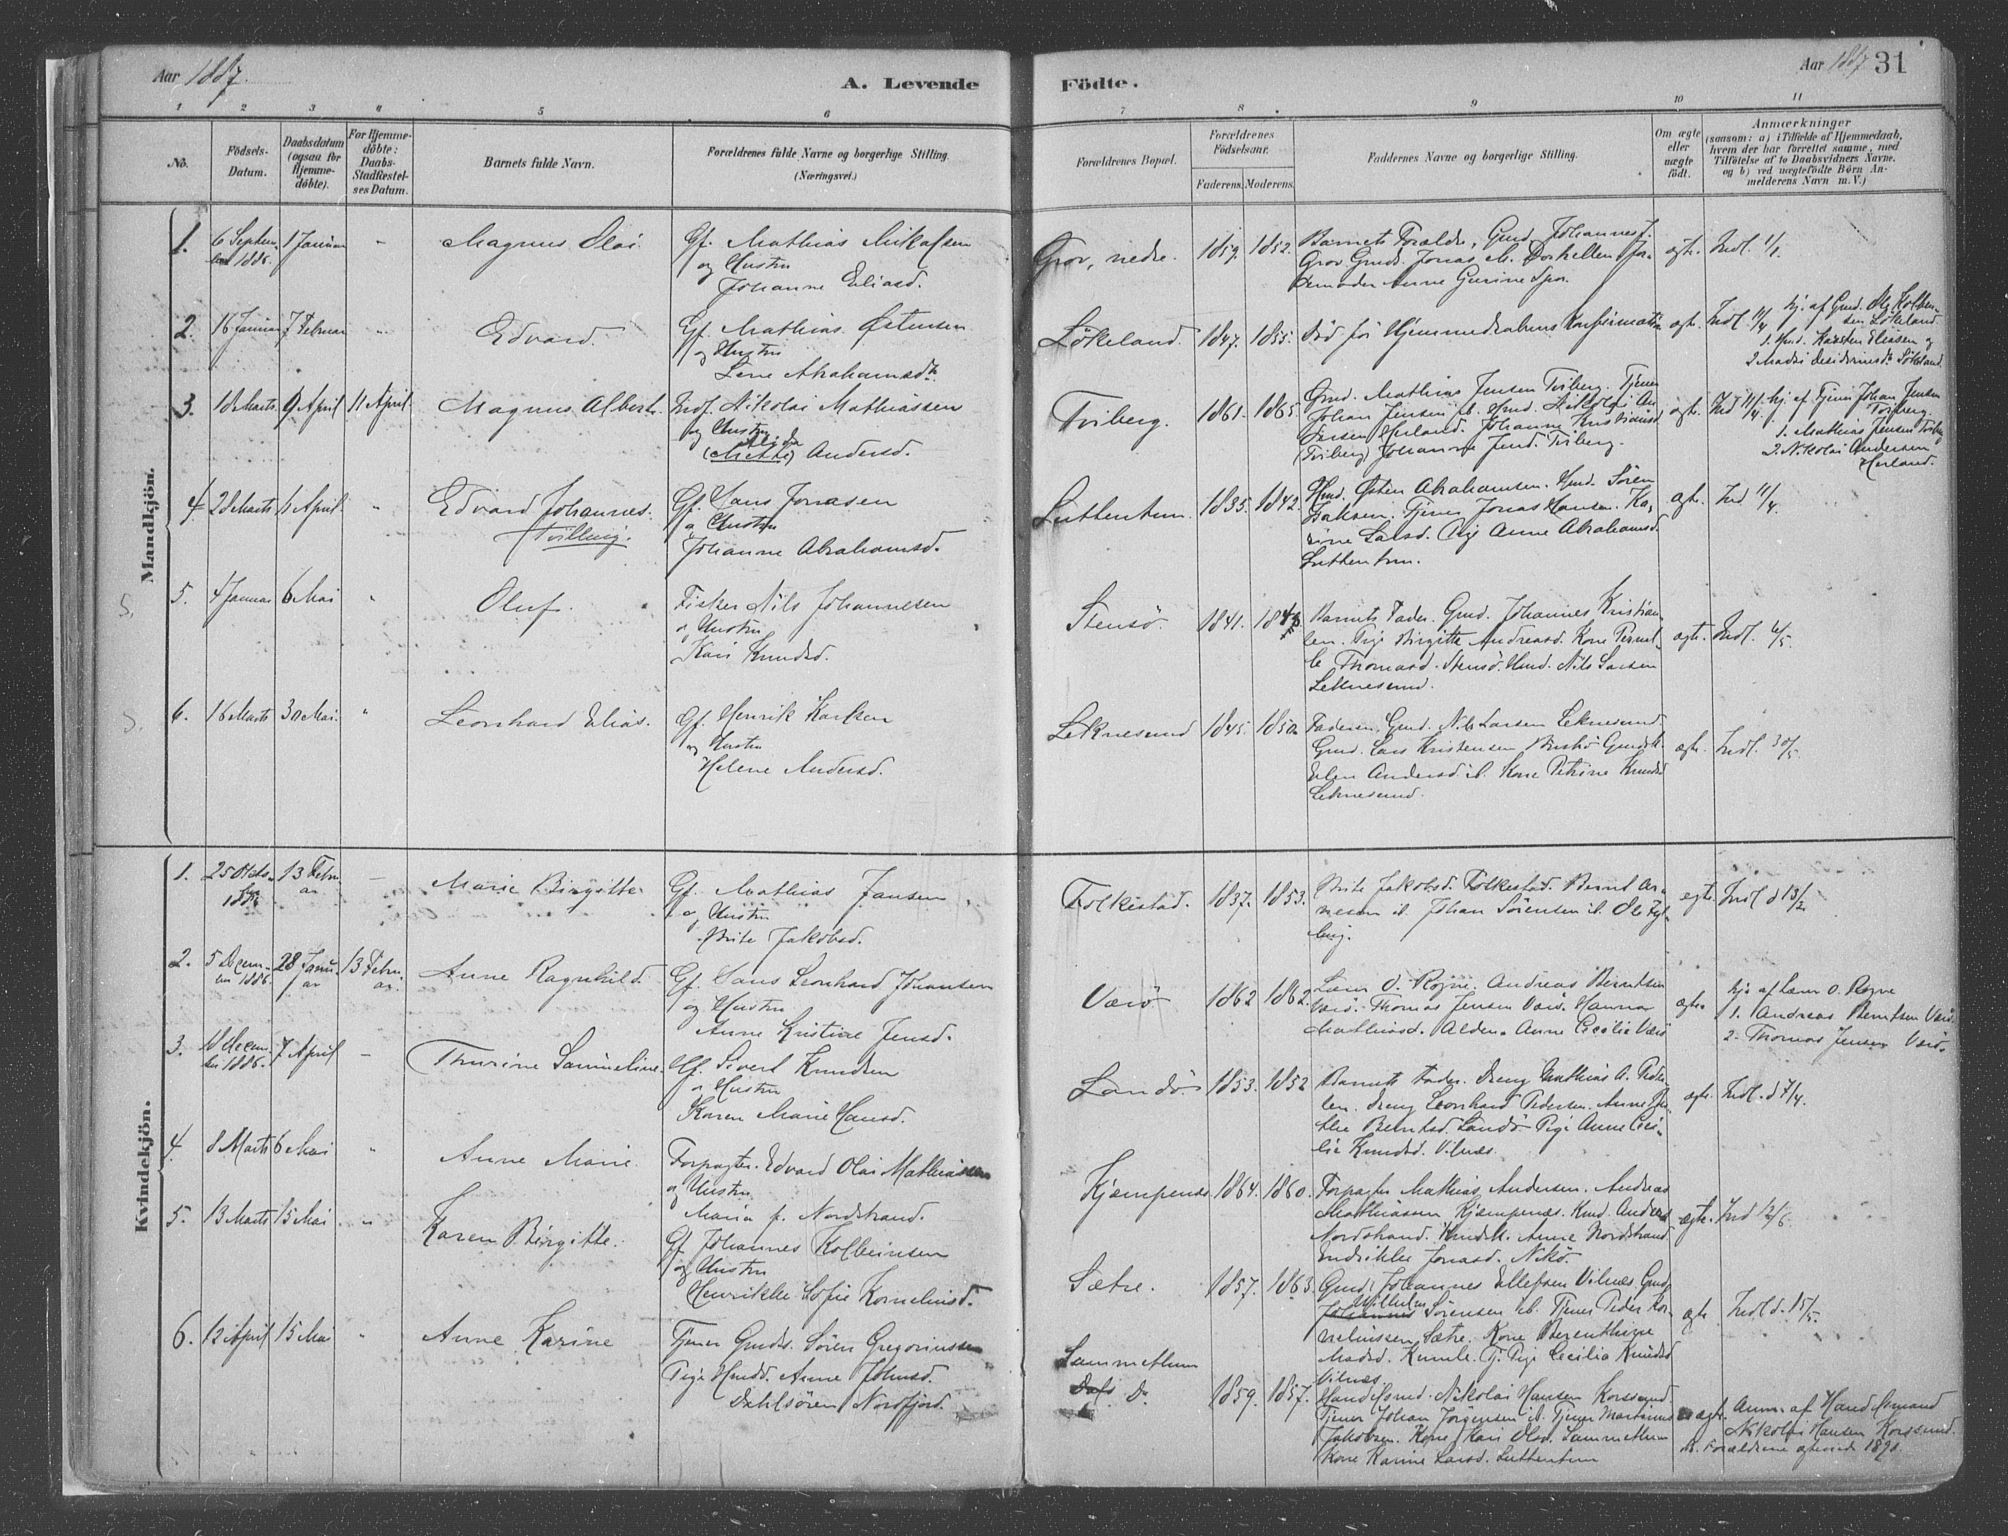 Aar 1887.
A. Levende
Födte.
Aar 1887 31
1 2 3 4 5 6 7 8 9 10 11
No.
Födsels-Datum.
Daabsdatum (ogsaa for Hjemme-döbte).
For Hjemme-döbte: Daabs-Stadfæstel-ses Datum.
Barnets fulde Navn.
Forældrenes fulde Navne og borgerlige Stilling.
(Næringsvei.)
Forældrenes Bopæl.
Forældrenes Födselsaar.
Faderens. Moderens.
Faddernes Navne og borgerlige Stilling.
Om ægte eller uægte födt.
Anmærkninger
(saasom: a) i Tilfælde af Hjemmedaab,
hvem der har forrettet samme, med
Tilföielse af to Daabsvidners Navne.
og b) ved uægtefödte Börn An-
melderens Navn m. V.)
Mandkjön.
1. 6 Septem- 1 Januar - Magnus Olai Gf. Mathias Mikalsen
ber 1886. og Hustru
Johanne Eliasd.
Grov, nedre. 1859. 1852. Barnets Forældre, Gmd. Johannes J.
Grov Gmds. Jonas
demoder Anne Gurine
ægte. Indl. 1/1.
2. 16 Januar 7 Februar " Edvard. Gf. Mathias Østensen
og Hustru
Lene Abrahamsdtr.
Løkeland. 1847. 1855. Död før Hjemmedaabens Konfirmation
ægte. Indl. 11/4 hj. af Gmd.
Løkeland.
1. Gmd. Karsten Eliasen og
2 Løkeland
3. 18 Marts 9 April 11 April. Magnus Albert. Indf. Nikolai Mathiassen
og Hustru
(Mette) Andersd.
Tviberg. 1861. 1865. Gmd. Mathias Jensen Tviberg. Tjener
Johan Jensen ib. Gmd. Nikolai An-
dersen Herland. Johanne Kristiansd
(Tviberg) Johanne Jensd. Tviberg.
ægte. Ind 11/4. hj. af Tjener Johan Jensen
Tviberg.
1. Mathias Jensen Tviberg
2. Nikolai Andersen
Herland.
4. 28 Marts 11 April " Edvard Johannes. Gf. Hans Jonasen
(Tvilling). og Hustru
Johanne Abrahamsd.
Luttentun. 1835. 1842. Gmd. Østen Abrahamsen. Gmd. Sören
Isaksen. Tjener Jonas Hansen. Ka-
rine Larsd. Pige Anne Abrahamsd.
Luttentun.
ægte. Ind 11/4.
5. 4 Januar 6 Mai " Oluf. Fisker Nils Johannesen
og Hustru
Kari Knudsd.
Stensö. 1841. Barnets Fader. Gmd. Johannes Kristian-
sen. Pige Birgitte Andreasd. Kone Pernil-
le Thomasd. Stensö. Gmd. Nils Larsen
Leknesund.
ægte. Indl. 6/5.
6. 16 Marts 30 Mai. " Leonhard Elias. Gf. Henrik Karlsen
og Hustru
Helene Andersd.
Leknesund 1845. 1850. Faderen. Gmd. Nils Larsen Leknesund
Gmd. Lars Kristensen Gmdsk.
Elen Andersd ib. Kone Petrine Knudsd
Leknesund.
ægte. Indl. 30/5.
Kvindekjön.
1. 25 Okto- 13 Febru- - Marie Birgitte. Gf. Mathias Jansen
ber 1886 ar og Hustru
Brite Jakobsd.
Folkestad. 1837. 1853. Brite Jakobsd. Folkestad. Bernt Ar-
nesen ib. Johan Sörensen ib.
ægte. Indl d 13/2
2. 5 Decem- 28 Janu- 13 Febru- Anne Ragnhild. Gf. Hans Leonhard Johansen
ber 1886. ar ar. og Hustru
Anne Kristine Jensd.
Værö 1862 1862. Læm O. Røgne. Andreas Berntsen
Værö. Thomas Jensen Værö. Hanna
Mathiasd. Alden. Anne Cecilie Værö
ægte hj. af Læm O. Røgne
1. Andreas Berntsen Værö
2. Thomas Jensen Værö.
3. 18 Decem- 7 April - Thurine Samueline. Gf. Sivert Knudsen
ber 1886. og Hustru
Karen Marie Hansd.
Landö. 1853. 1852 Barnets Fader. Dreng Mathias A. Peder-
sen. Dreng Leonhard Pedersen. Anne
Berntsd. Landö. Pige Anne Ceci-
lie Knudsd. Vilnæs.
ægte. Indl. d 7/4.
4. 8 Marts 6 Mai " Anne Marie. Forpagter. Edvard Olai Mathiassen
og Hustru
Maria f. Nordstrand.
Kjempenes 1864. 1860. Forpagter Mathias Andersen. Andreas
Mathiassen Kjempenes. Gmd. Anders
Nordstrand. Gmdsk. Anne Nordstrand.
Endrikke Jonasd. Nikö.
ægte. Ind 12/6.
5. 13 Marts 15 Mai " Karen Birgitte. Gf. Johannes Kolbeinsen
og Hustru
Henrikke Sofie Korneliusd.
Sætre. 1857. 1863. Gmd. Johannes Ellefsen Vilnæs Gmd.
Wilhelm Sörensen ib. Tjener Peder Kor-
neliussen Sætre. Kone Berenthine
Madsd. Pige Cecilia Knudsd
Vilnæs
ægte. Indl d. 15/5.
6. 12 April 15 Mai " Anne Karine Tjener Gmds. Sören Gregoriussen
Pige Gmdd. Anne Johnsd.
Dahlsören Nordfjord.
Sammethun
D. 1859. 1857. Handelsmd. Nikolai Hansen Korssund.
Tjener Johan Jörgensen ib. Tjener Martinus
Jakobsen. Kone Kari Olsd. Sammethun
Kone Karine Larsd. Luttentun
uægte. Anm. af Handelsmand
Nikolai Hansen Korssund.
Forældrene ægteviet 1890.